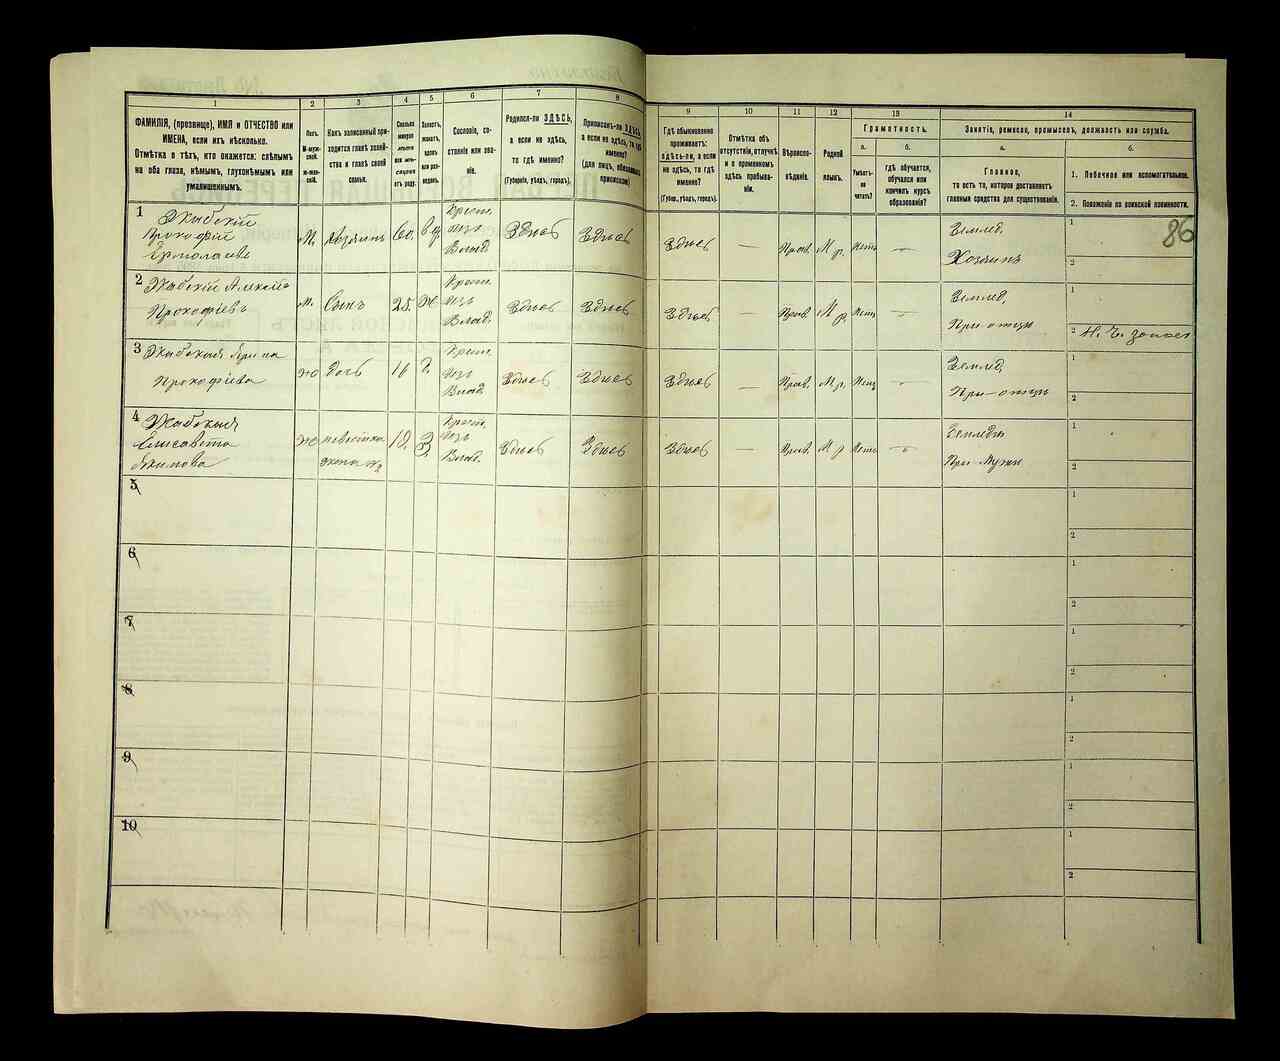 1
2
3
4
5
6
7
8
ФАМИЛІЯ, (прозвище), ИМЯ и ОТЧЕСТВО или
ИМЕНА, если ихъ нѣсколько.
Отмѣтка о тѣхъ, кто окажется: слѣпымъ
на оба глаза, нѣмымъ, глухонѣмымъ или
умалишеннымъ.
Полъ.
М-муж-
ской.
Ж-жен-
скій.
Какъ записанный при-
ходится главѣ хозяй-
ства и главѣ своей
семьи.
Сколько
минуло
лѣтъ
или мѣ-
сяцевъ
отъ роду.
Холостъ,
женатъ,
вдовъ
или раз-
веденъ.
Сословіе, со-
стояніе или зва-
ніе.
Родился-ли ЗДѢСЬ,
а если не здѣсь,
то гдѣ именно?
(Губернія, уѣздъ, городъ).
Приписанъ-ли ЗДѢСЬ
а если не здѣсь, то гдѣ
именно?
(для лицъ, обязанныхъ
припискою)
9
10
11
12
13
14
Гдѣ обыкновенно
проживаетъ:
здѣсь-ли, а если
не здѣсь, то гдѣ
именно?
(Губерн., уѣздъ, городъ).
Отмѣтка объ
отсутствіи, отлучкѣ
и о временномъ
здѣсь пребыва-
ніи.
Вѣроиспо-
вѣданіе.
Родной
языкъ.
Грамотность.
а.
б.
Умѣетъ-
ли
читать?
гдѣ обучается,
обучался или
кончилъ курсъ
образованія?
Занятіе, ремесло, промыселъ, должность или служба.
а.
б.
Главное,
то есть то, которое доставляетъ
главныя средства для существованія.
1. Побочное или вспомогательное.
2. Положеніе по воинской повинности.
86
1
Прокофій
Ермолаевъ
М. Хозяинъ 60. вд.
Крест.
изъ
Влад.
Здѣсь Здѣсь Здѣсь — Прав. М р. Нетъ —
Землед.
Хозяинъ
1
2
2
Алексѣй
Прокофіевъ
м. Сынъ 25. Ж.
Крест.
изъ
Влад.
Здѣсь Здѣсь Здѣсь — Прав. М р. Нетъ —
Землед.
При отцѣ
1
2
3
Прокофіева
ж дочь
Крест.
изъ
Влад.
Здѣсь Здѣсь Здѣсь — Прав. М р. Нетъ —
Землед.
При отцѣ
1
2
4
Елисавета
ж невестка
жена
Крест.
изъ
Влад.
Здѣсь Здѣсь Здѣсь — Прав. М р Нетъ —
Землед.
При мужѣ
1
2
5
1
2
6
1
2
7
1
2
8
1
2
9
1
2
10
1
2